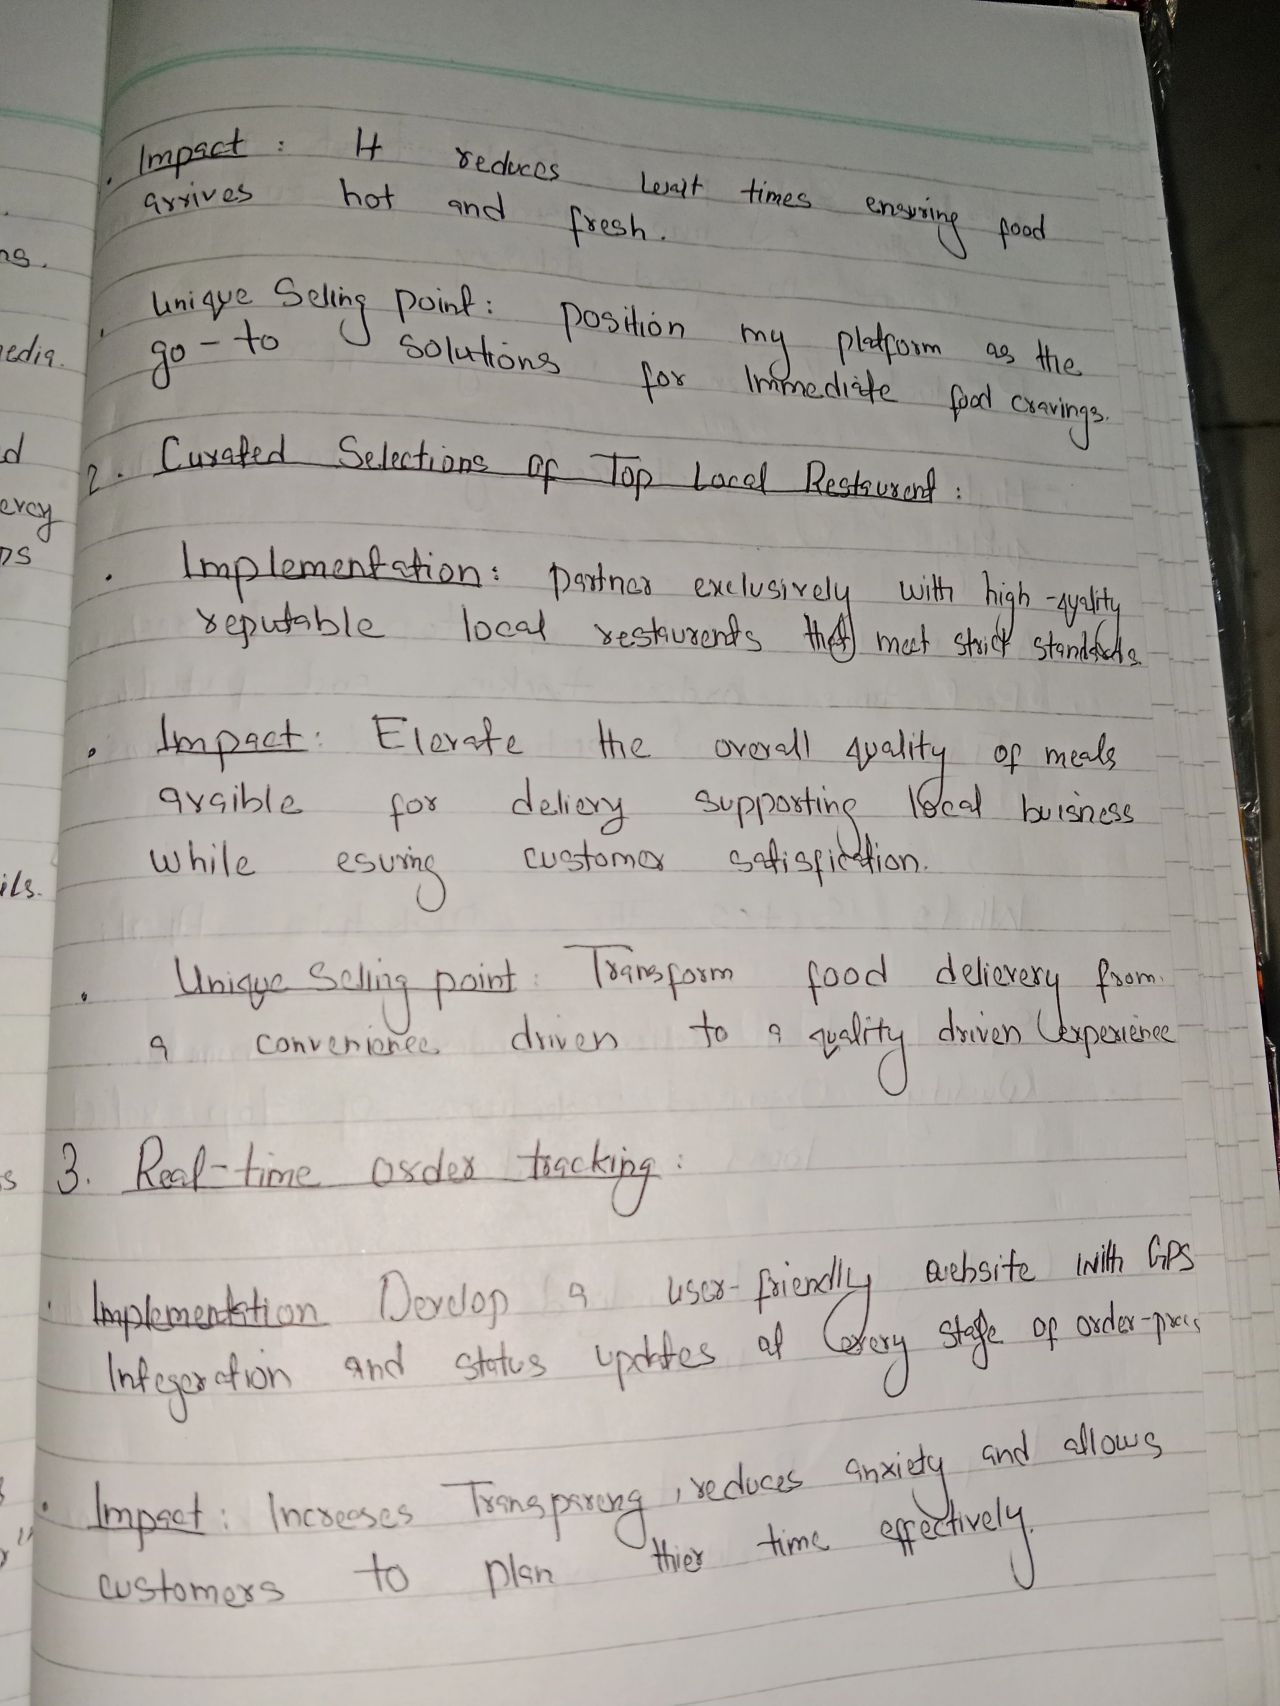 Impact : It reduces wait times ensuring food
arrives hot and fresh.
Unique Seling point : position my platform as the
go-to solutions for Immediate food cravings.
2. Curated Selections of Top Local Restaurent :
Implementation : partner exclusively with high-quality
reputable local restaurents that meet strict standards
Impact : Elevate the overall quality of meals
avaible for delievy supporting local buisness
while esuring customer satisfication.
Unique Seling point : Transform food delievery from
a convenience driven to a quality driven experience
3. Real-time order tracking :
Implementation Develop a user-friendly website with GPS
Integeration and status updates at every stage of order-
Impact : Increases Transpareny, reduces anxiety and allows
customers to plan thier time effectively.
ns.
edia.
d
ercy
ns
ils.
s